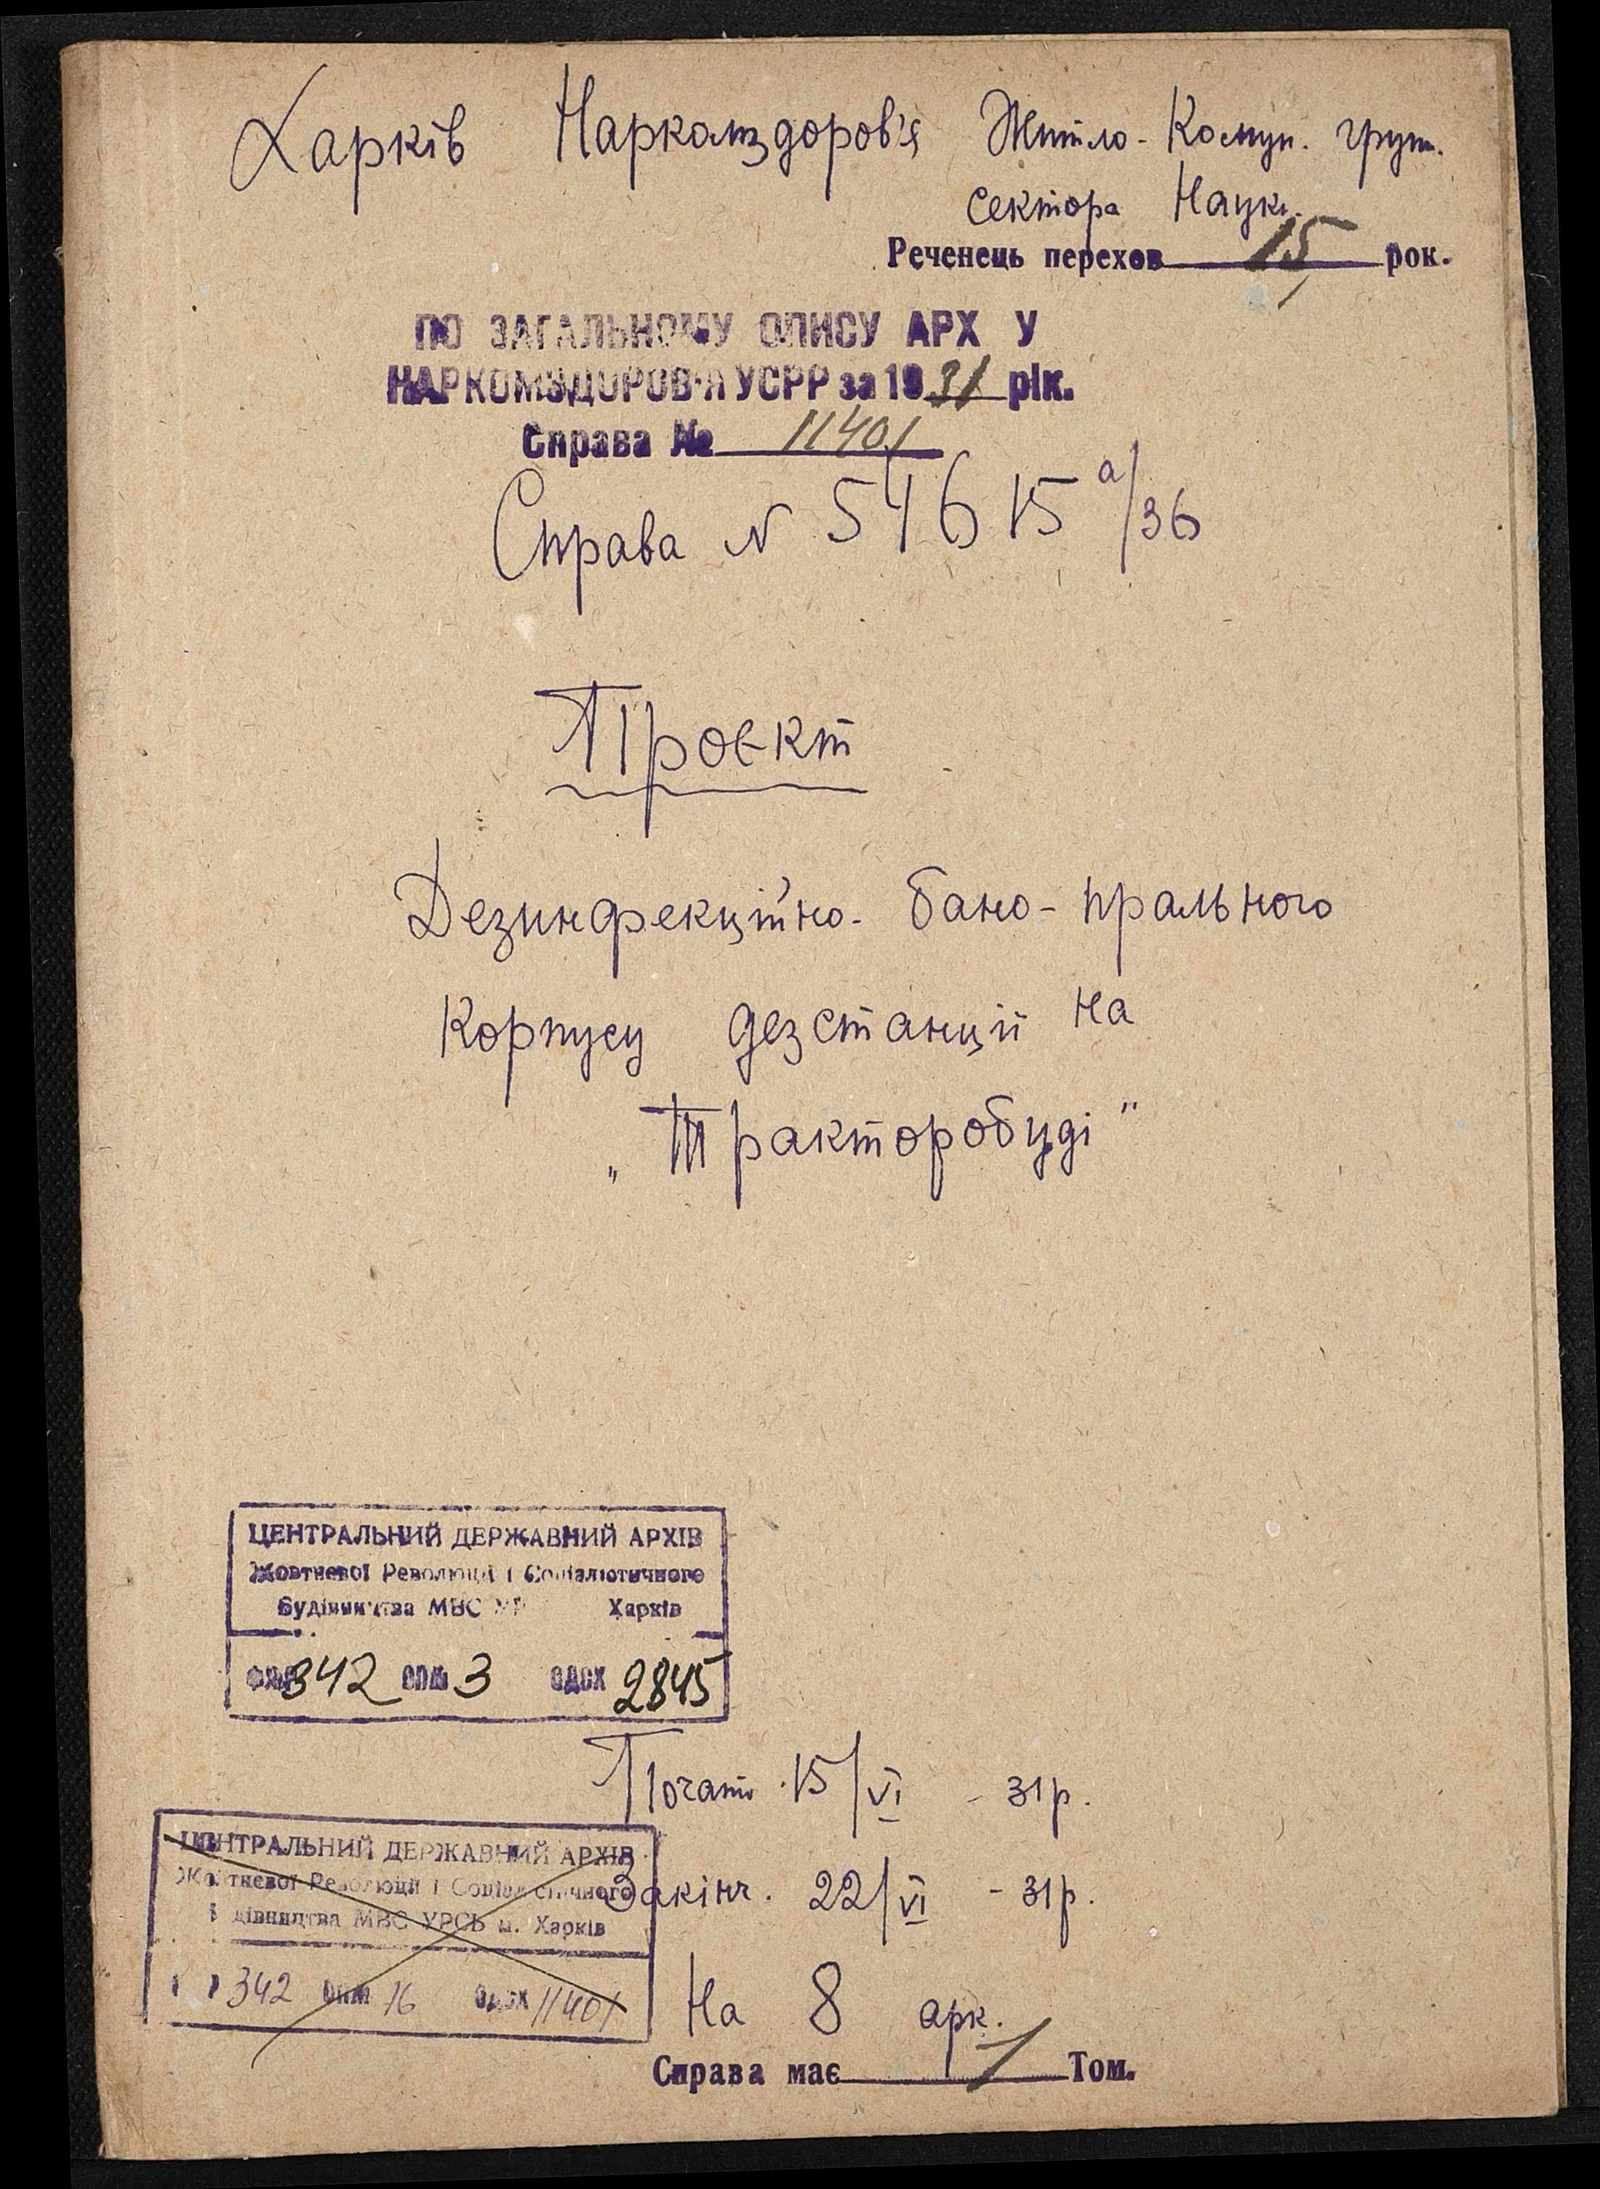 Харків Наркомздоров'я Житло-Комун. груп.
сектора Науки.
Реченець перехов 15 рок.
ПО ЗАГАЛЬНОМУ ОПИСУ АРХ У
НАРКОМЗДОРОВ'Я УСРР за 1931 рік.
Справа № 11401
Справа N 54615 а/36
Проєкт
Дезинфекційно-бано-прального
Корпусу дезстанції на
„Тракторобуді"
ЦЕНТРАЛЬНИЙ ДЕРЖАВНИЙ АРХІВ
Жовтневої Революції і Соціалістичного
Будівництва МВС УР Харків
ФОНД 342 ОПИС 3 ОДСХ 2845
Почато 15/VI - 31р.
ЦЕНТРАЛЬНИЙ ДЕРЖАВНИЙ АРХІВ
Жовтневої Революції і Соціалістичного
Закінч. 22/VI - 31р.
дівництва МВС УРСР м. Харків
342 ОПИС 16 ОДСХ 11401
На 8 арк.
Справа має 1 Том.